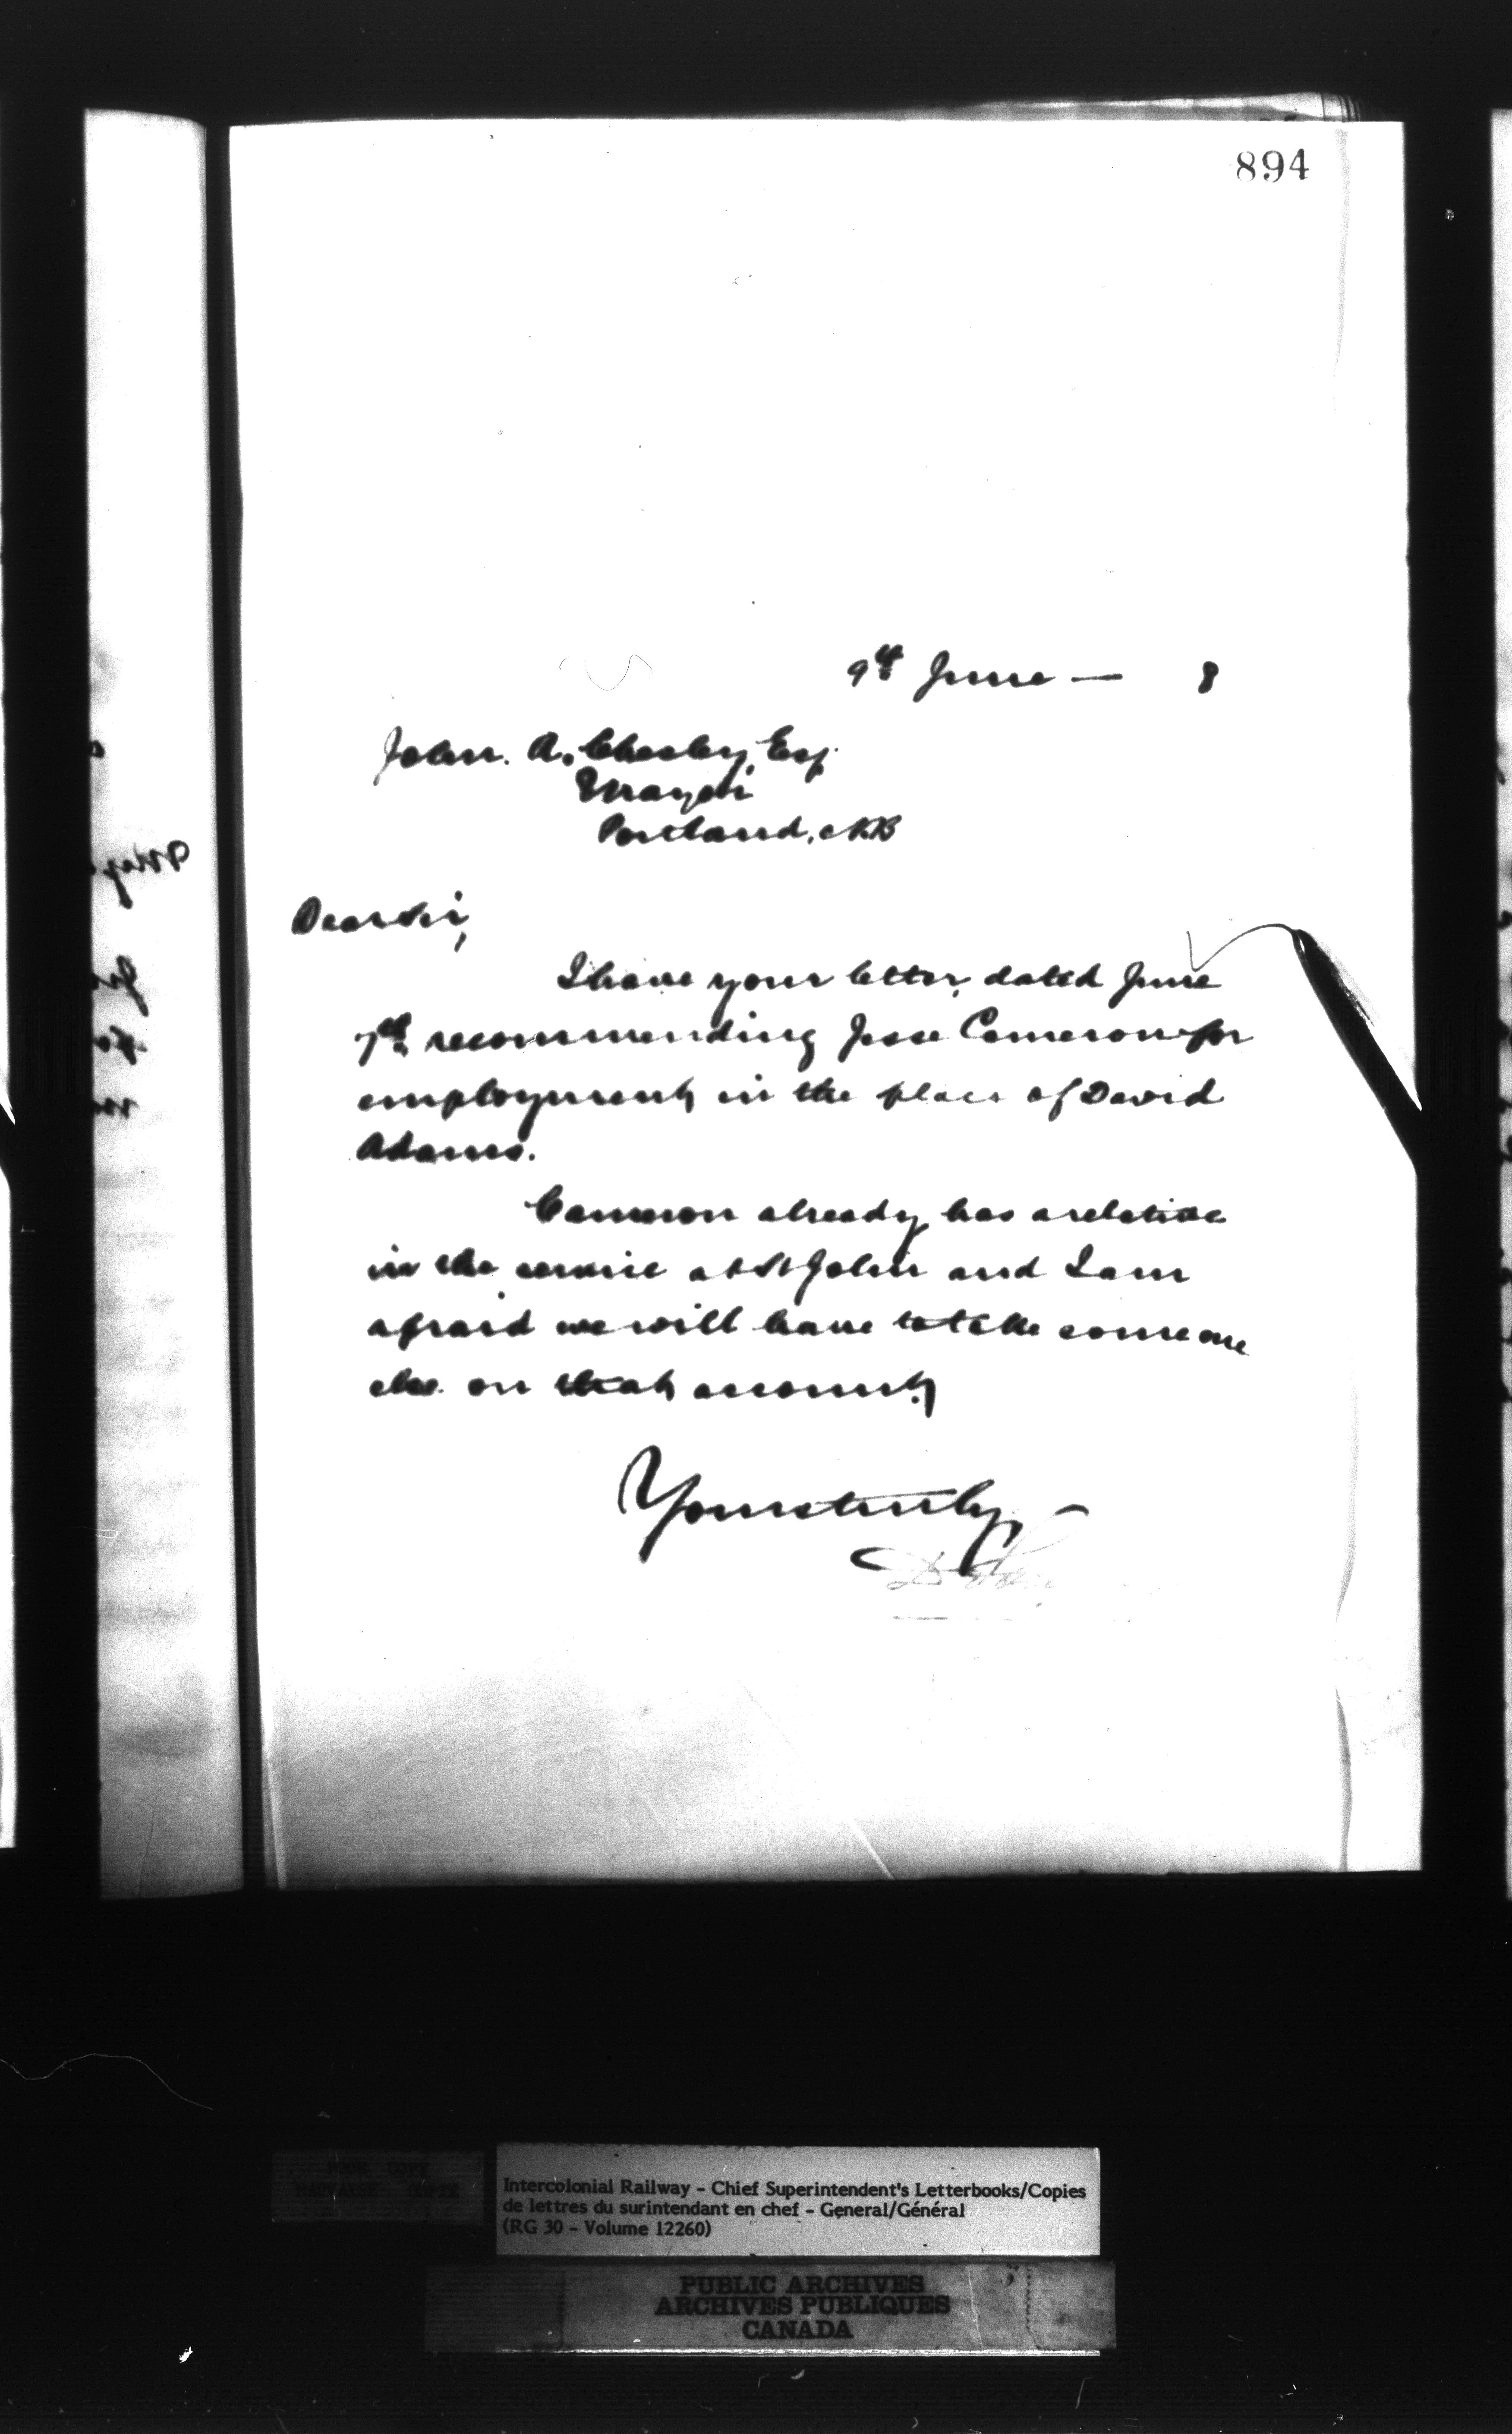 894
9th June — 8
John. A. Chesley, Esq.
Mayor
Portland, NB
Dear Sir,
I have your letter, dated June
7th recommending Jesse Cameron for
employment in the place of David
Adams.
Cameron already has a relative
in the service at St John and I am
afraid we will have to take someone
else on that account.
Yours truly,
POOR COPY
MAUVAISE COPIE
Intercolonial Railway - Chief Superintendent's Letterbooks/Copies
de lettres du surintendant en chef - General/Général
(RG 30 - Volume 12260)
PUBLIC ARCHIVES
ARCHIVES PUBLIQUES
CANADA